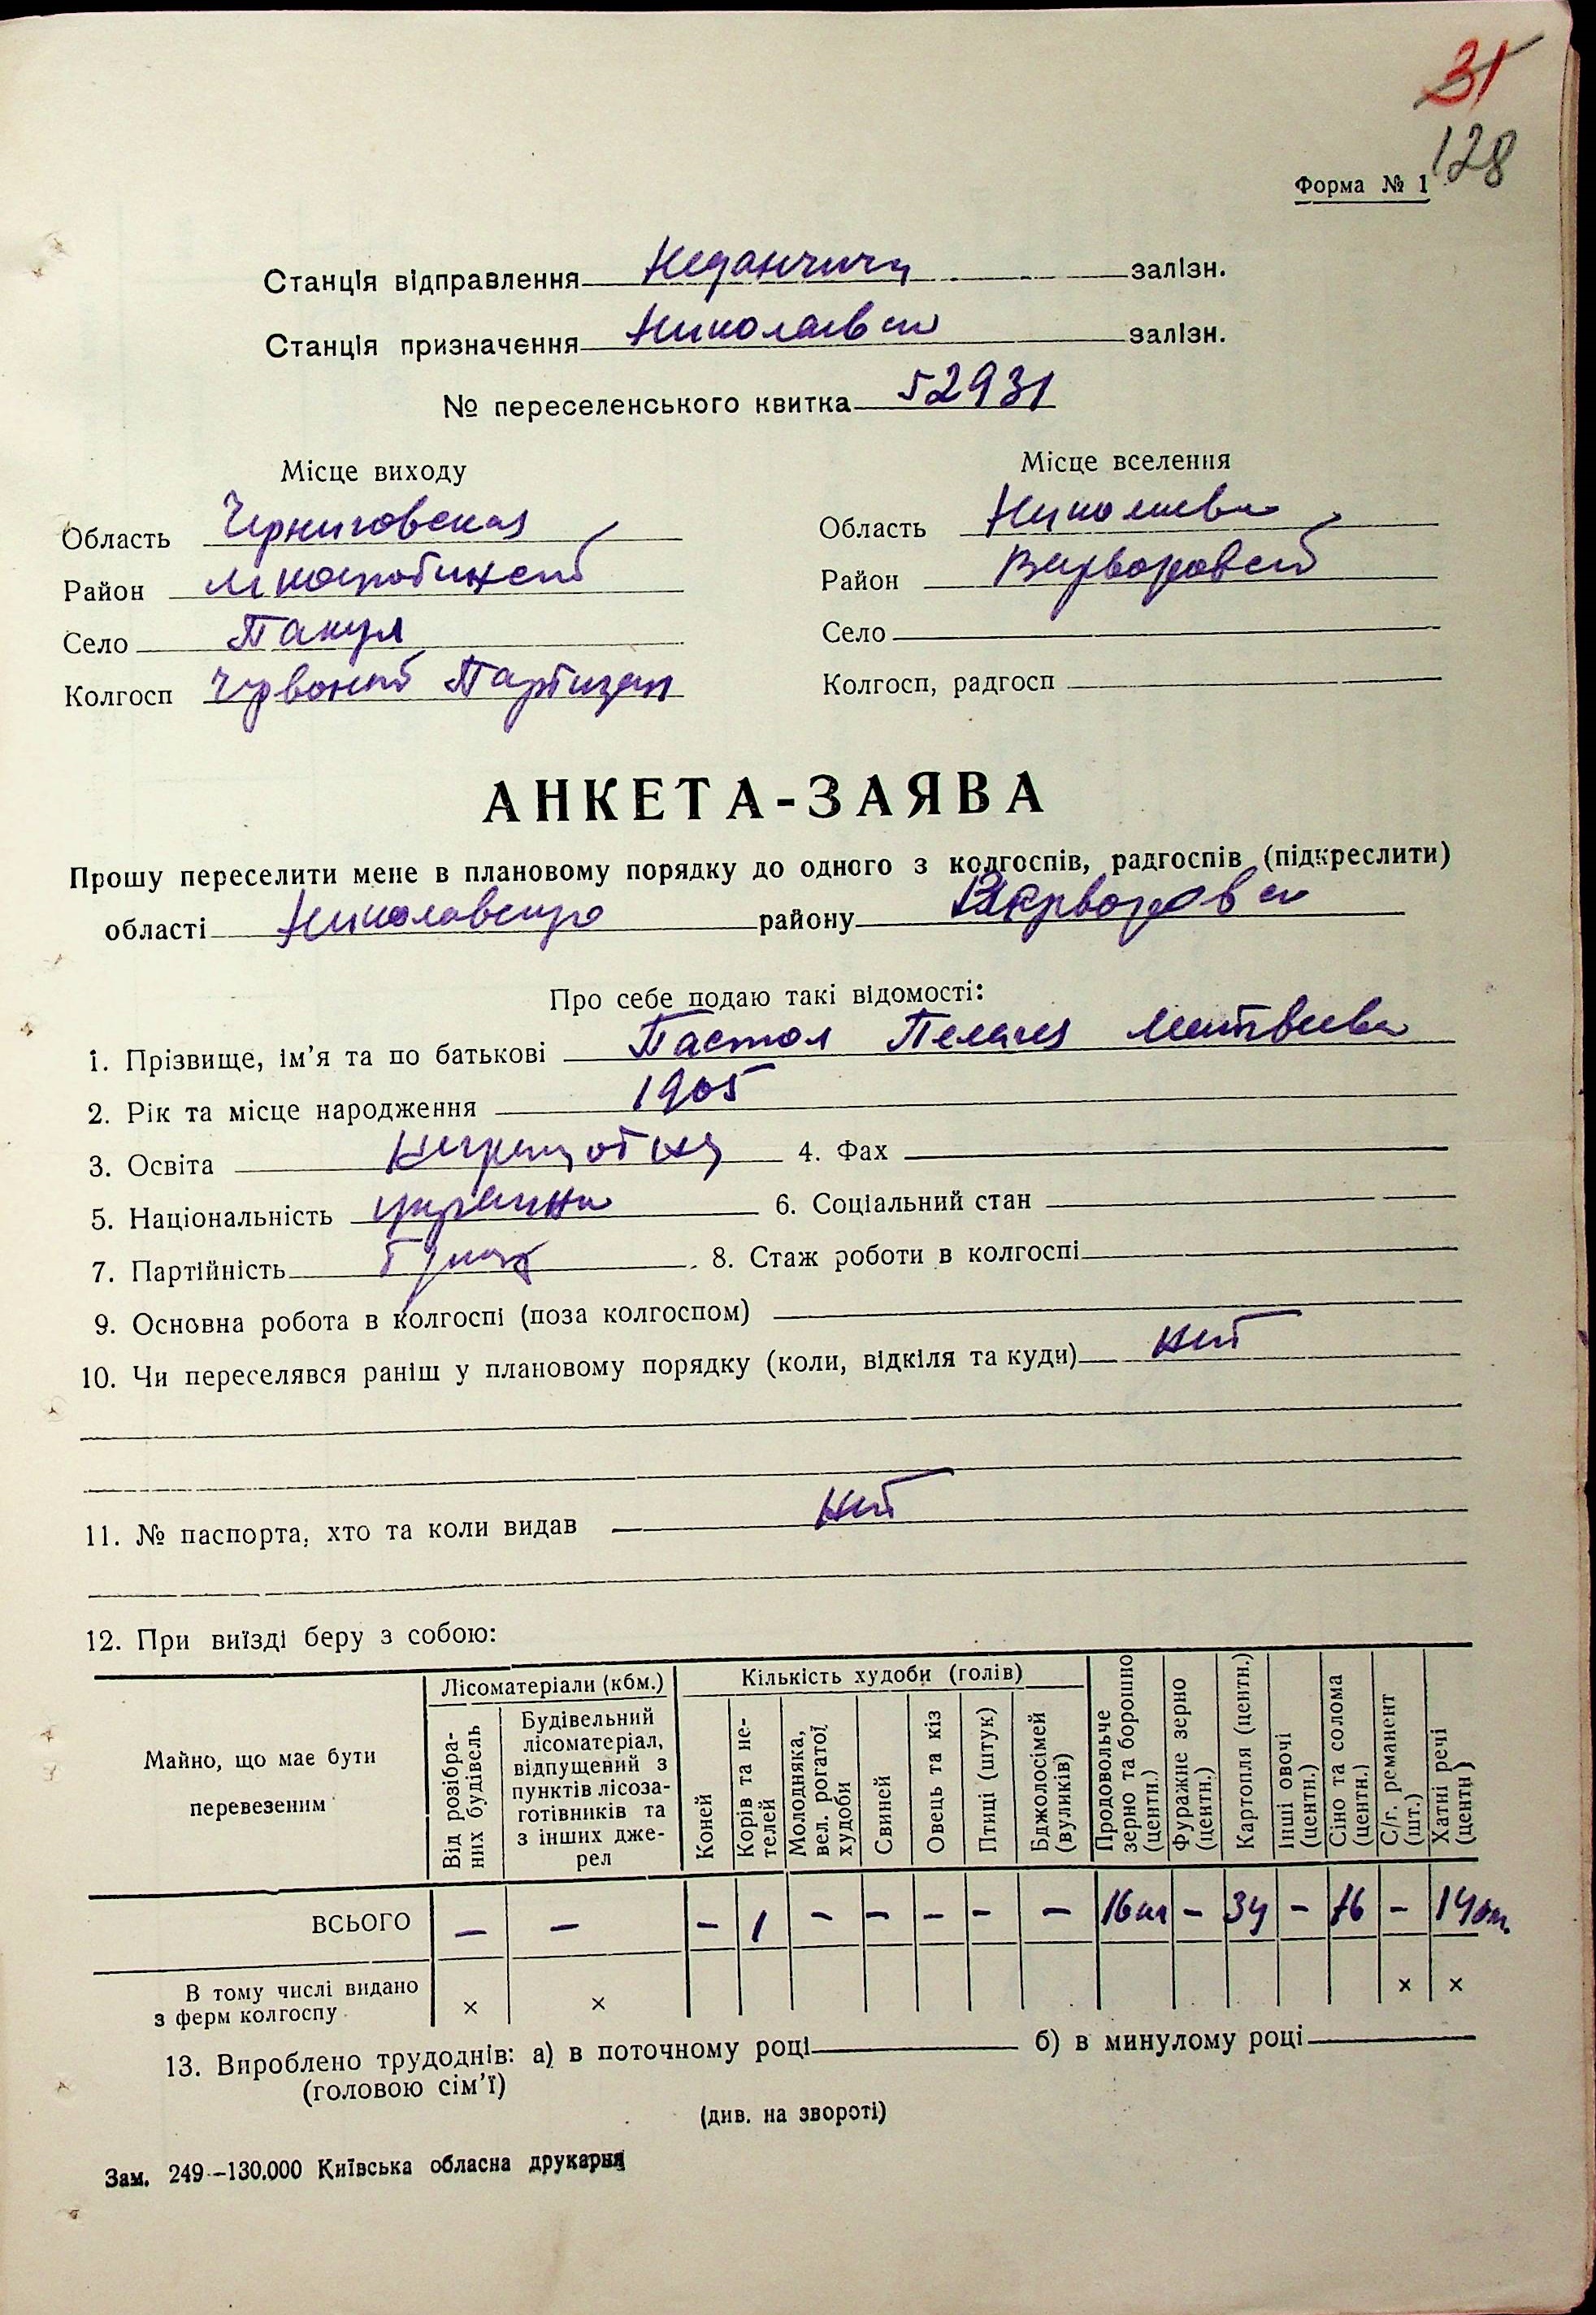 31
128
Форма № 1
Станція відправлення Неданчичи залізн.
Станція призначення Николаевск залізн.
№ переселенського квитка 52931
Місце виходу
Область Черниговская
Район
Село Пакуль
Колгосп Червоний Партизан
Місце вселення
Область Николаевск
Район Варваровский
Село
Колгосп, радгосп
АНКЕТА-ЗАЯВА
Прошу переселити мене в плановому порядку до одного з колгоспів, радгоспів (підкреслити)
області району Варваровск
Про себе подаю такі відомості:
1. Прізвище, ім’я та по батькові Пелагея
2. Рік та місце народження 1905
3. Освіта неграмотна 4. Фах
5. Національність украинка 6. Соціальний стан
7. Партійність 8. Стаж роботи в колгоспі
9. Основна робота в колгоспі (поза колгоспом)
10. Чи переселявся раніш у плановому порядку (коли, відкіля та куди) нет
11. № паспорта, хто та коли видав нет
12. При виїзді беру з собою:
Майно, що має бути перевезеним
Лісоматеріали (кбм.)
Від розібраних будівель
Будівельний лісоматеріал, відпущений з пунктів лісозаготівників та з інших джерел
Кількість худоби (голів)
Коней
Корів та нетелей
Молодняка, вел. рогатої худоби
Свиней
Овець та кіз
Птиці (штук)
Бджолосімей (вуликів)
Продовольче зерно та борошно (центн.)
Фуражне зерно (центн.)
Картопля (центн.)
Інші овочі (центн.)
Сіно та солома (центн.)
С/г. реманент (шт.)
Хатні речі (центн)
ВСЬОГО — — – 1 – – – – – – – –
В тому числі видано з ферм колгоспу × × × ×
13. Вироблено трудоднів: а) в поточному році б) в минулому році
(головою сім’ї)
(див. на звороті)
Зам. 249—130.000 Київська обласна друкарня